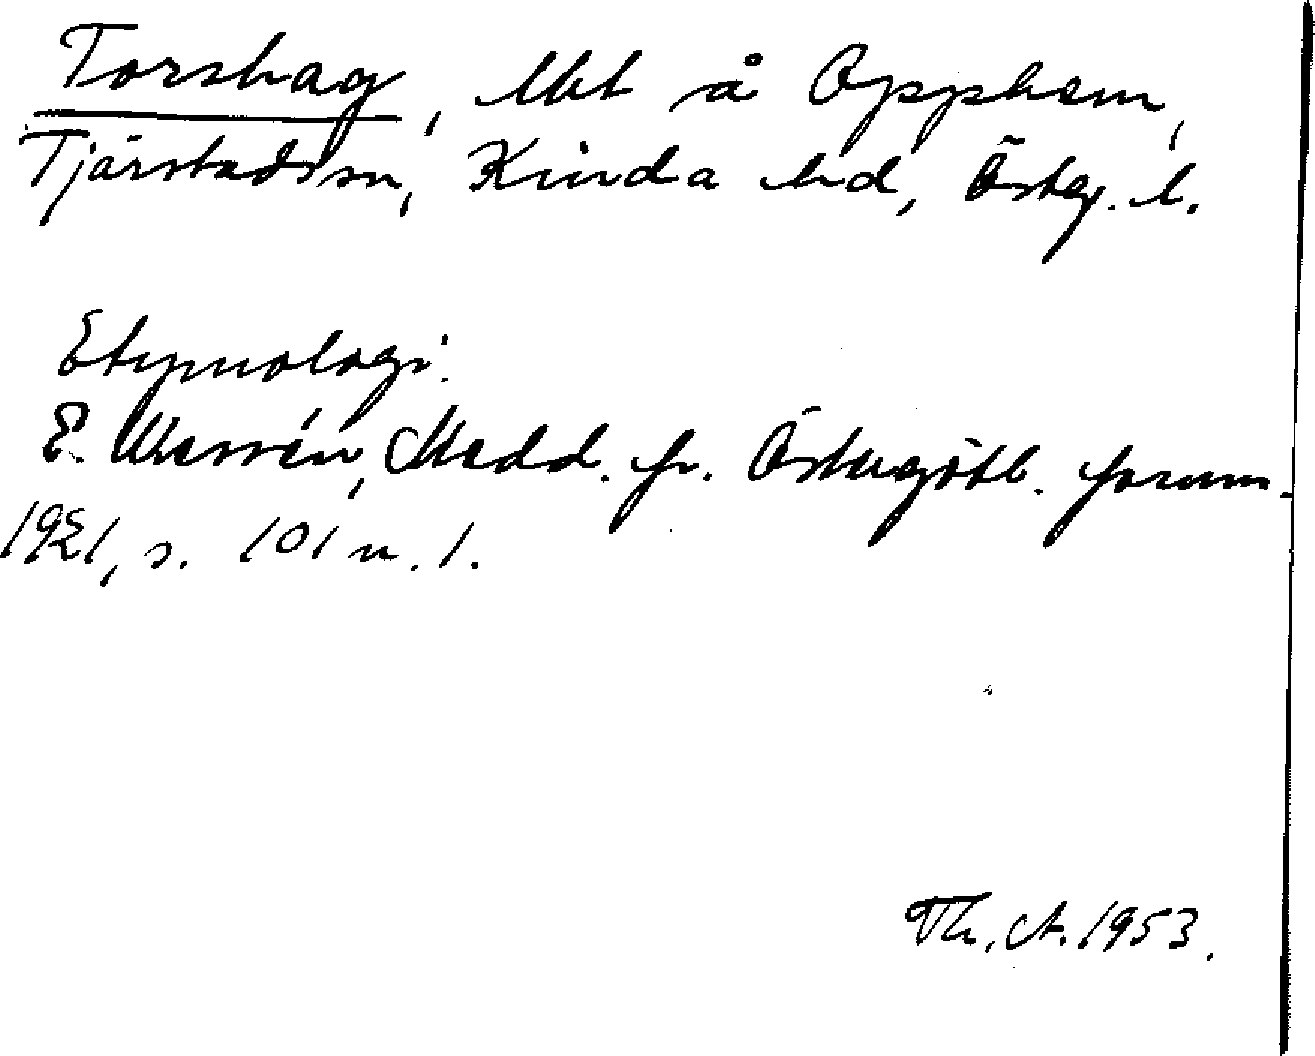 Torshag, lht å Opphem,
Tjärstads sn, Kinda hd, Östg. l.
Etymologi:
E. Wessén, Medd. fr. Östergötl. fornm.
1921, s. 101 n. 1.
Th. A. 1953.